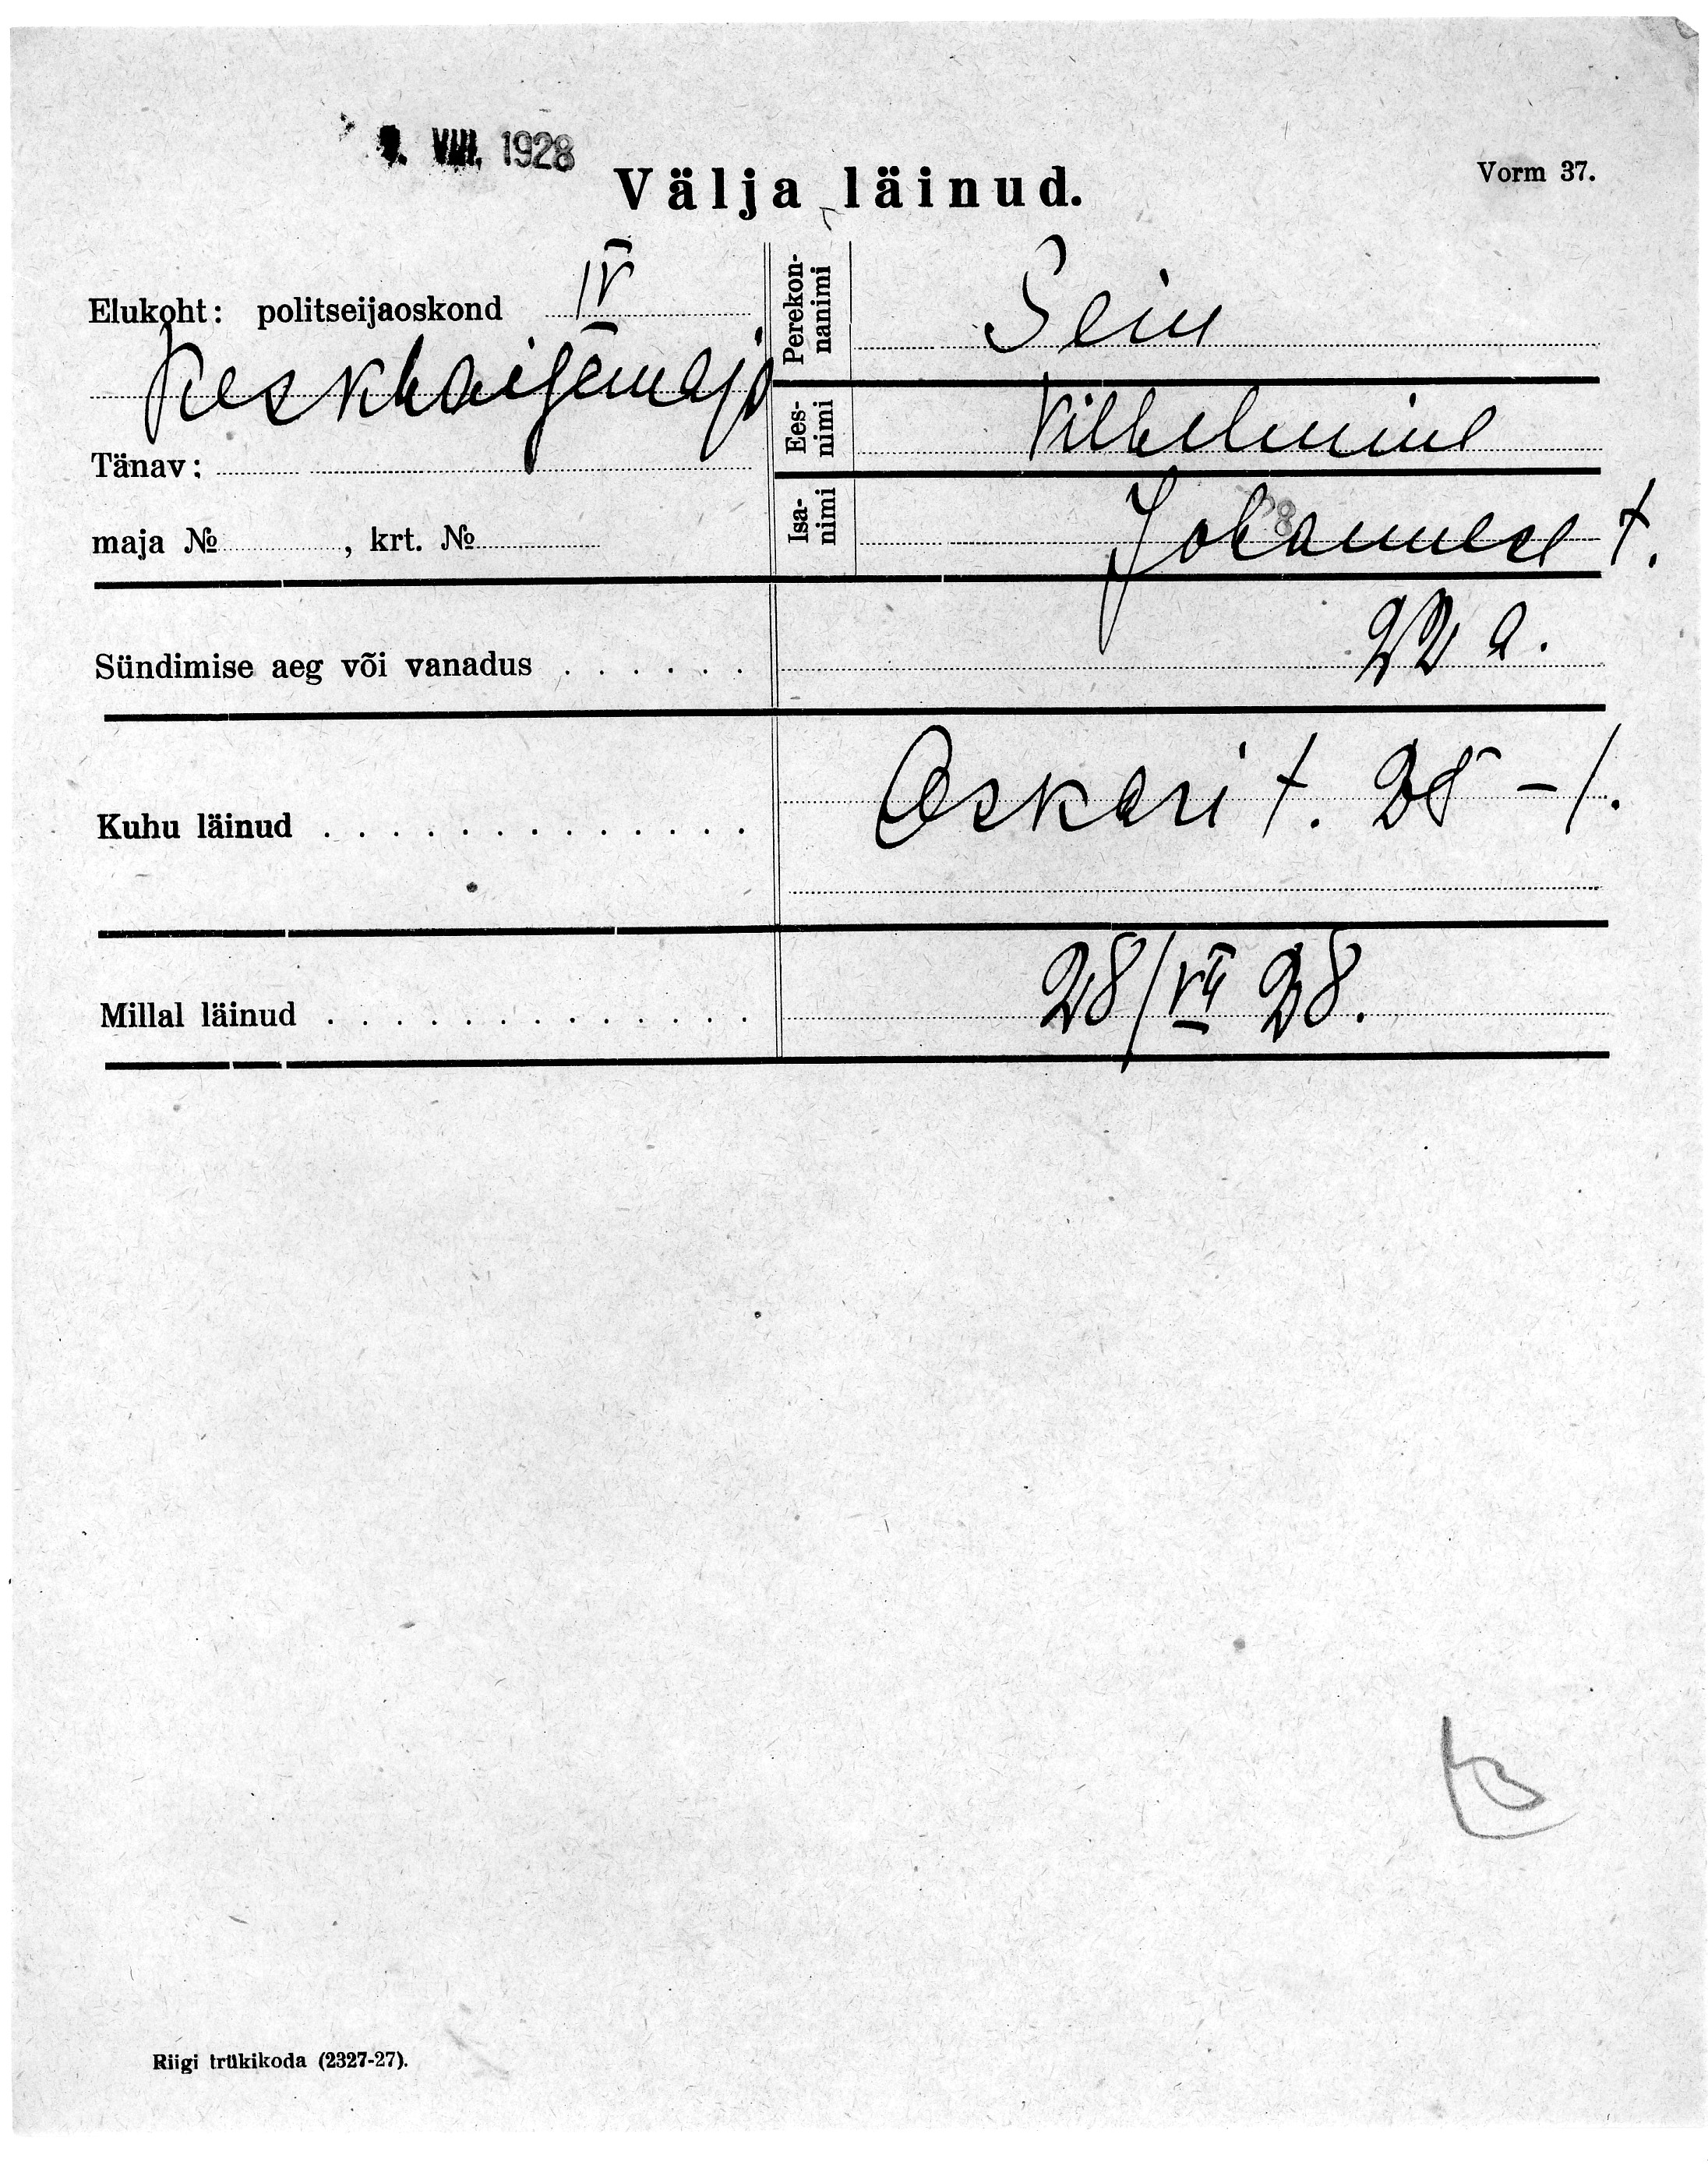 VIII. 1928
Välja läinud.
Vorm 37.
Elukoht: politseijaoskond IV
Keskhaigemaja
Tänav:
maja №, krt. №
Perekonnanimi Sein
Eesnimi Vilhelmine
Isanimi Johannese t.
Sündimise aeg või vanadus . . . . . . 22 a.
Kuhu läinud . . . . . . . . . . . . . Oskari t. 25 – 1.
Millal läinud . . . . . . . . . . . . . 28/VII 28.
Riigi trükikoda (2327-27).